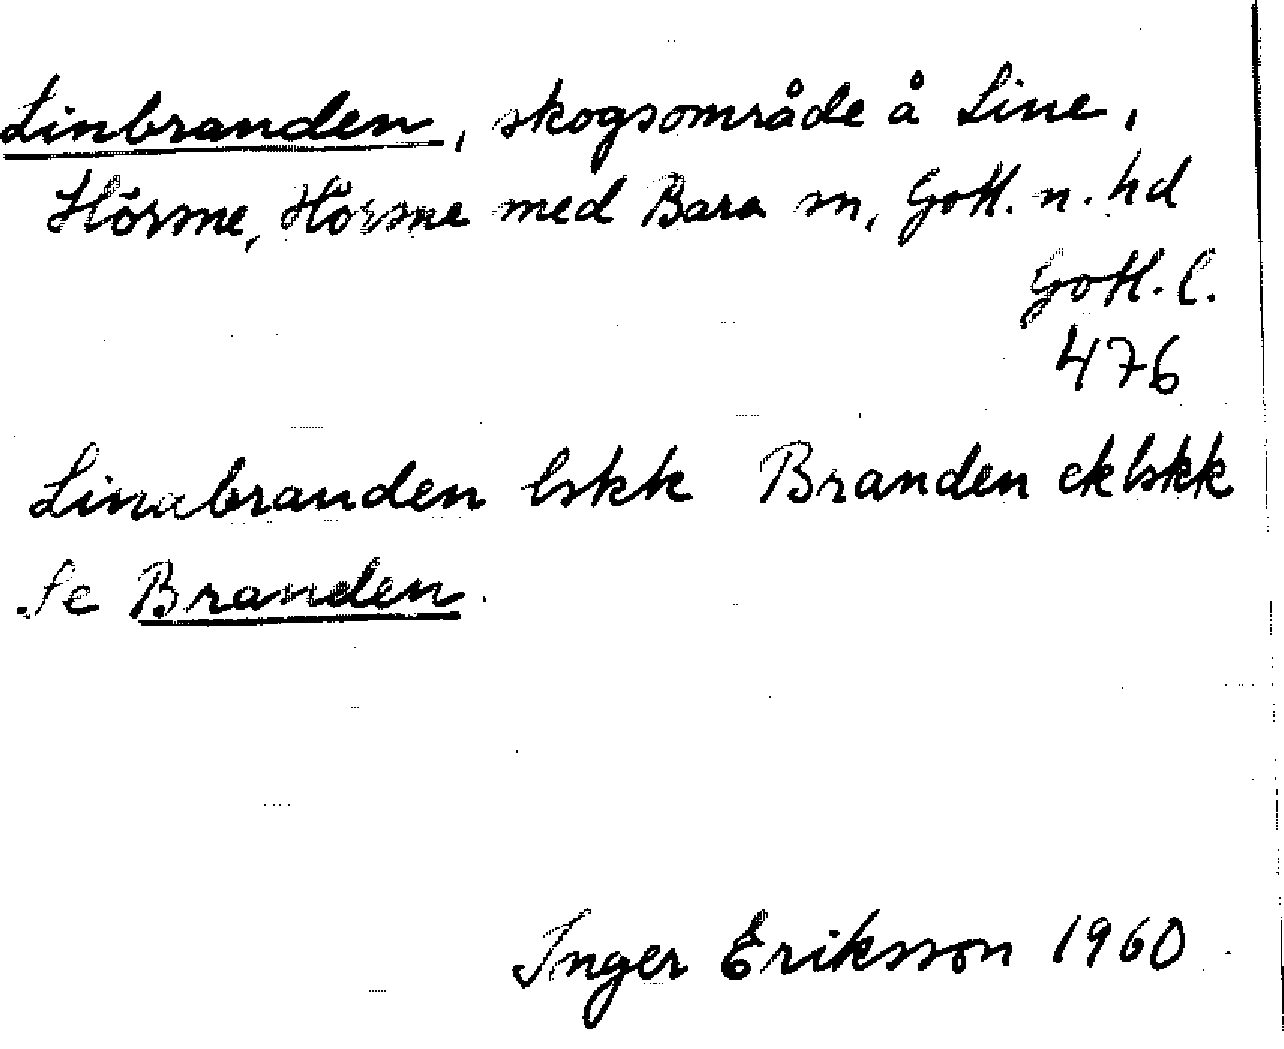 Linbranden, skogsområde å Line,
Hörsne, Hörsne med Bara sn, Gotl. n. hd
Gotl. l.
476
Linabranden lskk Branden eklskk
Se Branden.
Inger Eriksson 1960